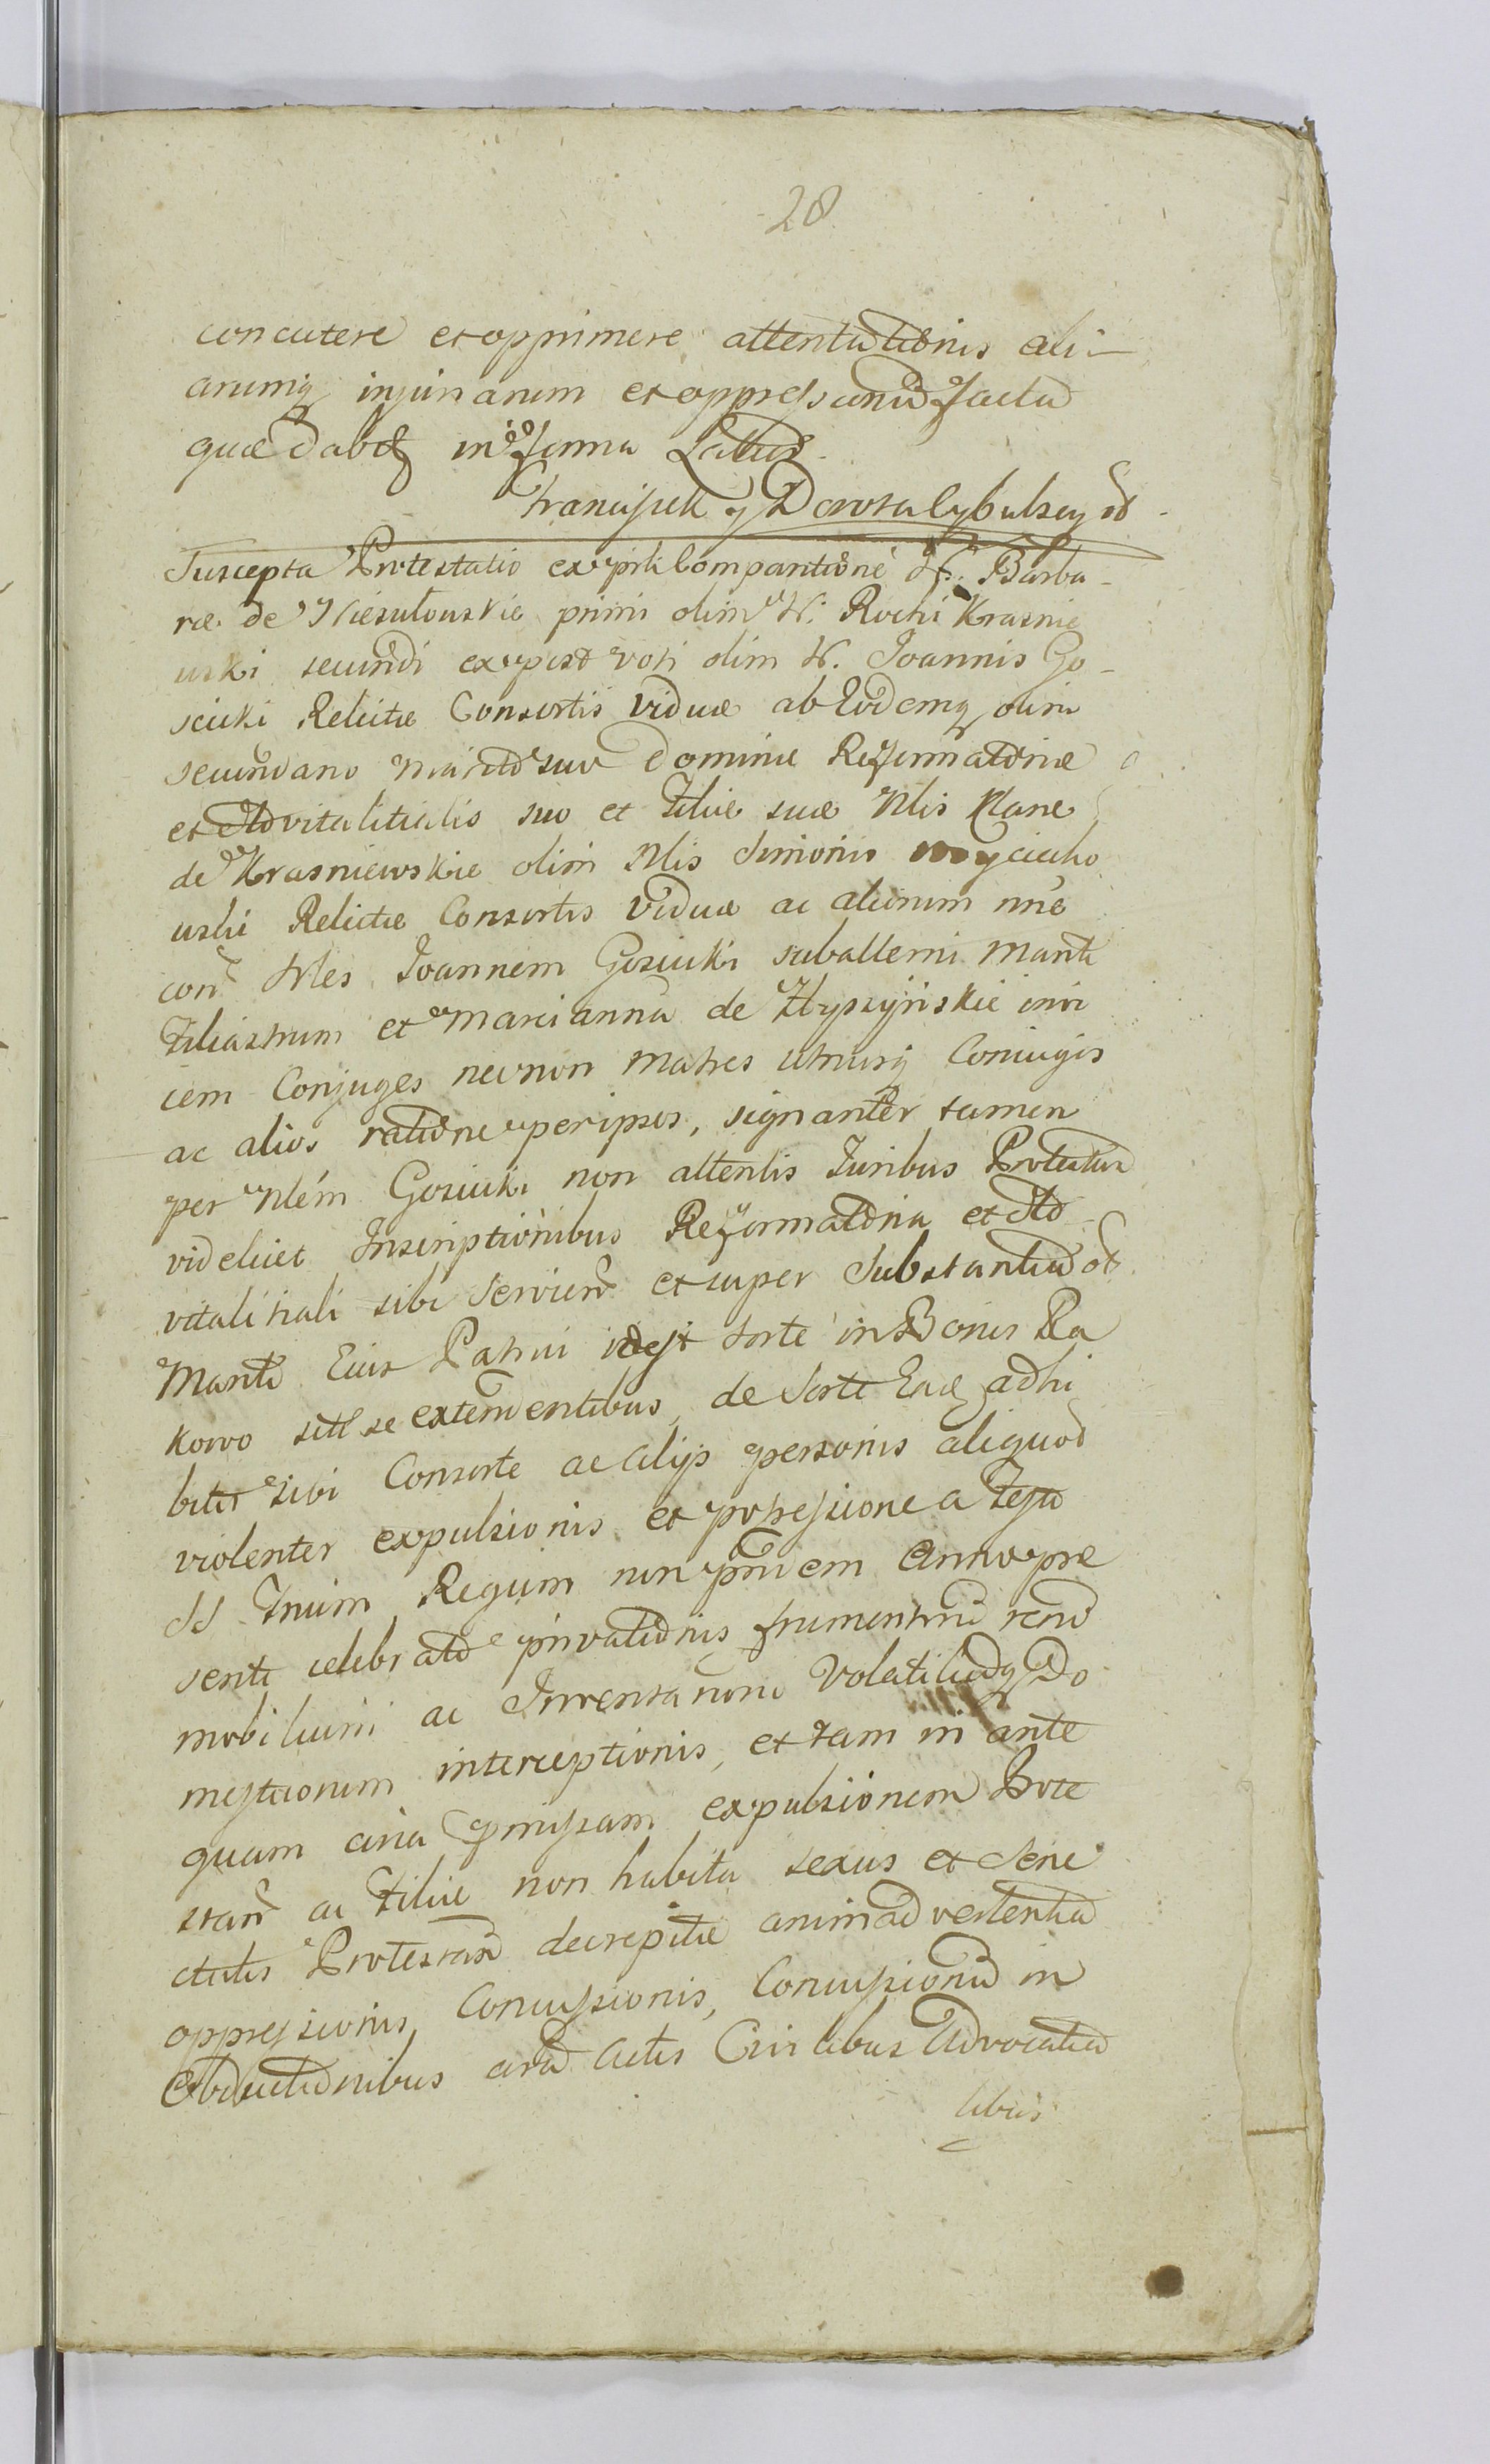 28
concutere et opprimere attentationis ali-
arumq injuriarum et oppressionũ facta
quæ dabtr in forma Latius.
Franciszek y Dorota Cybulscy
Suscepta Protestatio ex psli Comparitione N. Barba-
ræ de Niesułowskie primi olim N. Rochi Krasnie
wski secundi expost voti olim N. Joannis Go-
scicki Relictæ Consortis viduæ ab Eodemq olim
secundano marito suo Dominæ Reformatoriæ
et vitalitialis suo et Filiæ suæ Nlis
de Krasniewskie olim Nlis Simonis Woyciecho
wski Relictæ Consortis Viduæ ac aliorum nne
con Nles Joannem Gosicki suballerni Mariti
Filiastrum et Mariannã de invi
cem Conjuges necnon Matres utriusq Coniugis
ac alios ratione per ipsos, signanter tamen
per Nlem Gosicki non attentis Juribus
videlicet Inscriptionibus Reformatoria et
vitalitiali sibi Servien et super Substantia
Mariti Eius Patrui idest Sorte in Bonis Ra
kowo sitt se extendentibus, de Sorte Eadq adhi
bitis sibi Consorte ac alijs personis aliquod
violenter expulsionis et possessione a Festo
SS Trium Regum non pridem Anno præ
senti celebrato privationis frumentorũ rerũ
mobilium ac Inventarium Volatiliumq Do
mesticorum interceptionis, et tam in ante
quam circa præmissam expulsionem Prote
stan ac Filiæ non habita sexus et Sene
ctutis Protestan decrepitæ animadvertentia
oppressionis, Concussionis, Concussionũ in
Obductionibus corã Actis Civilibus Advocatia
libus